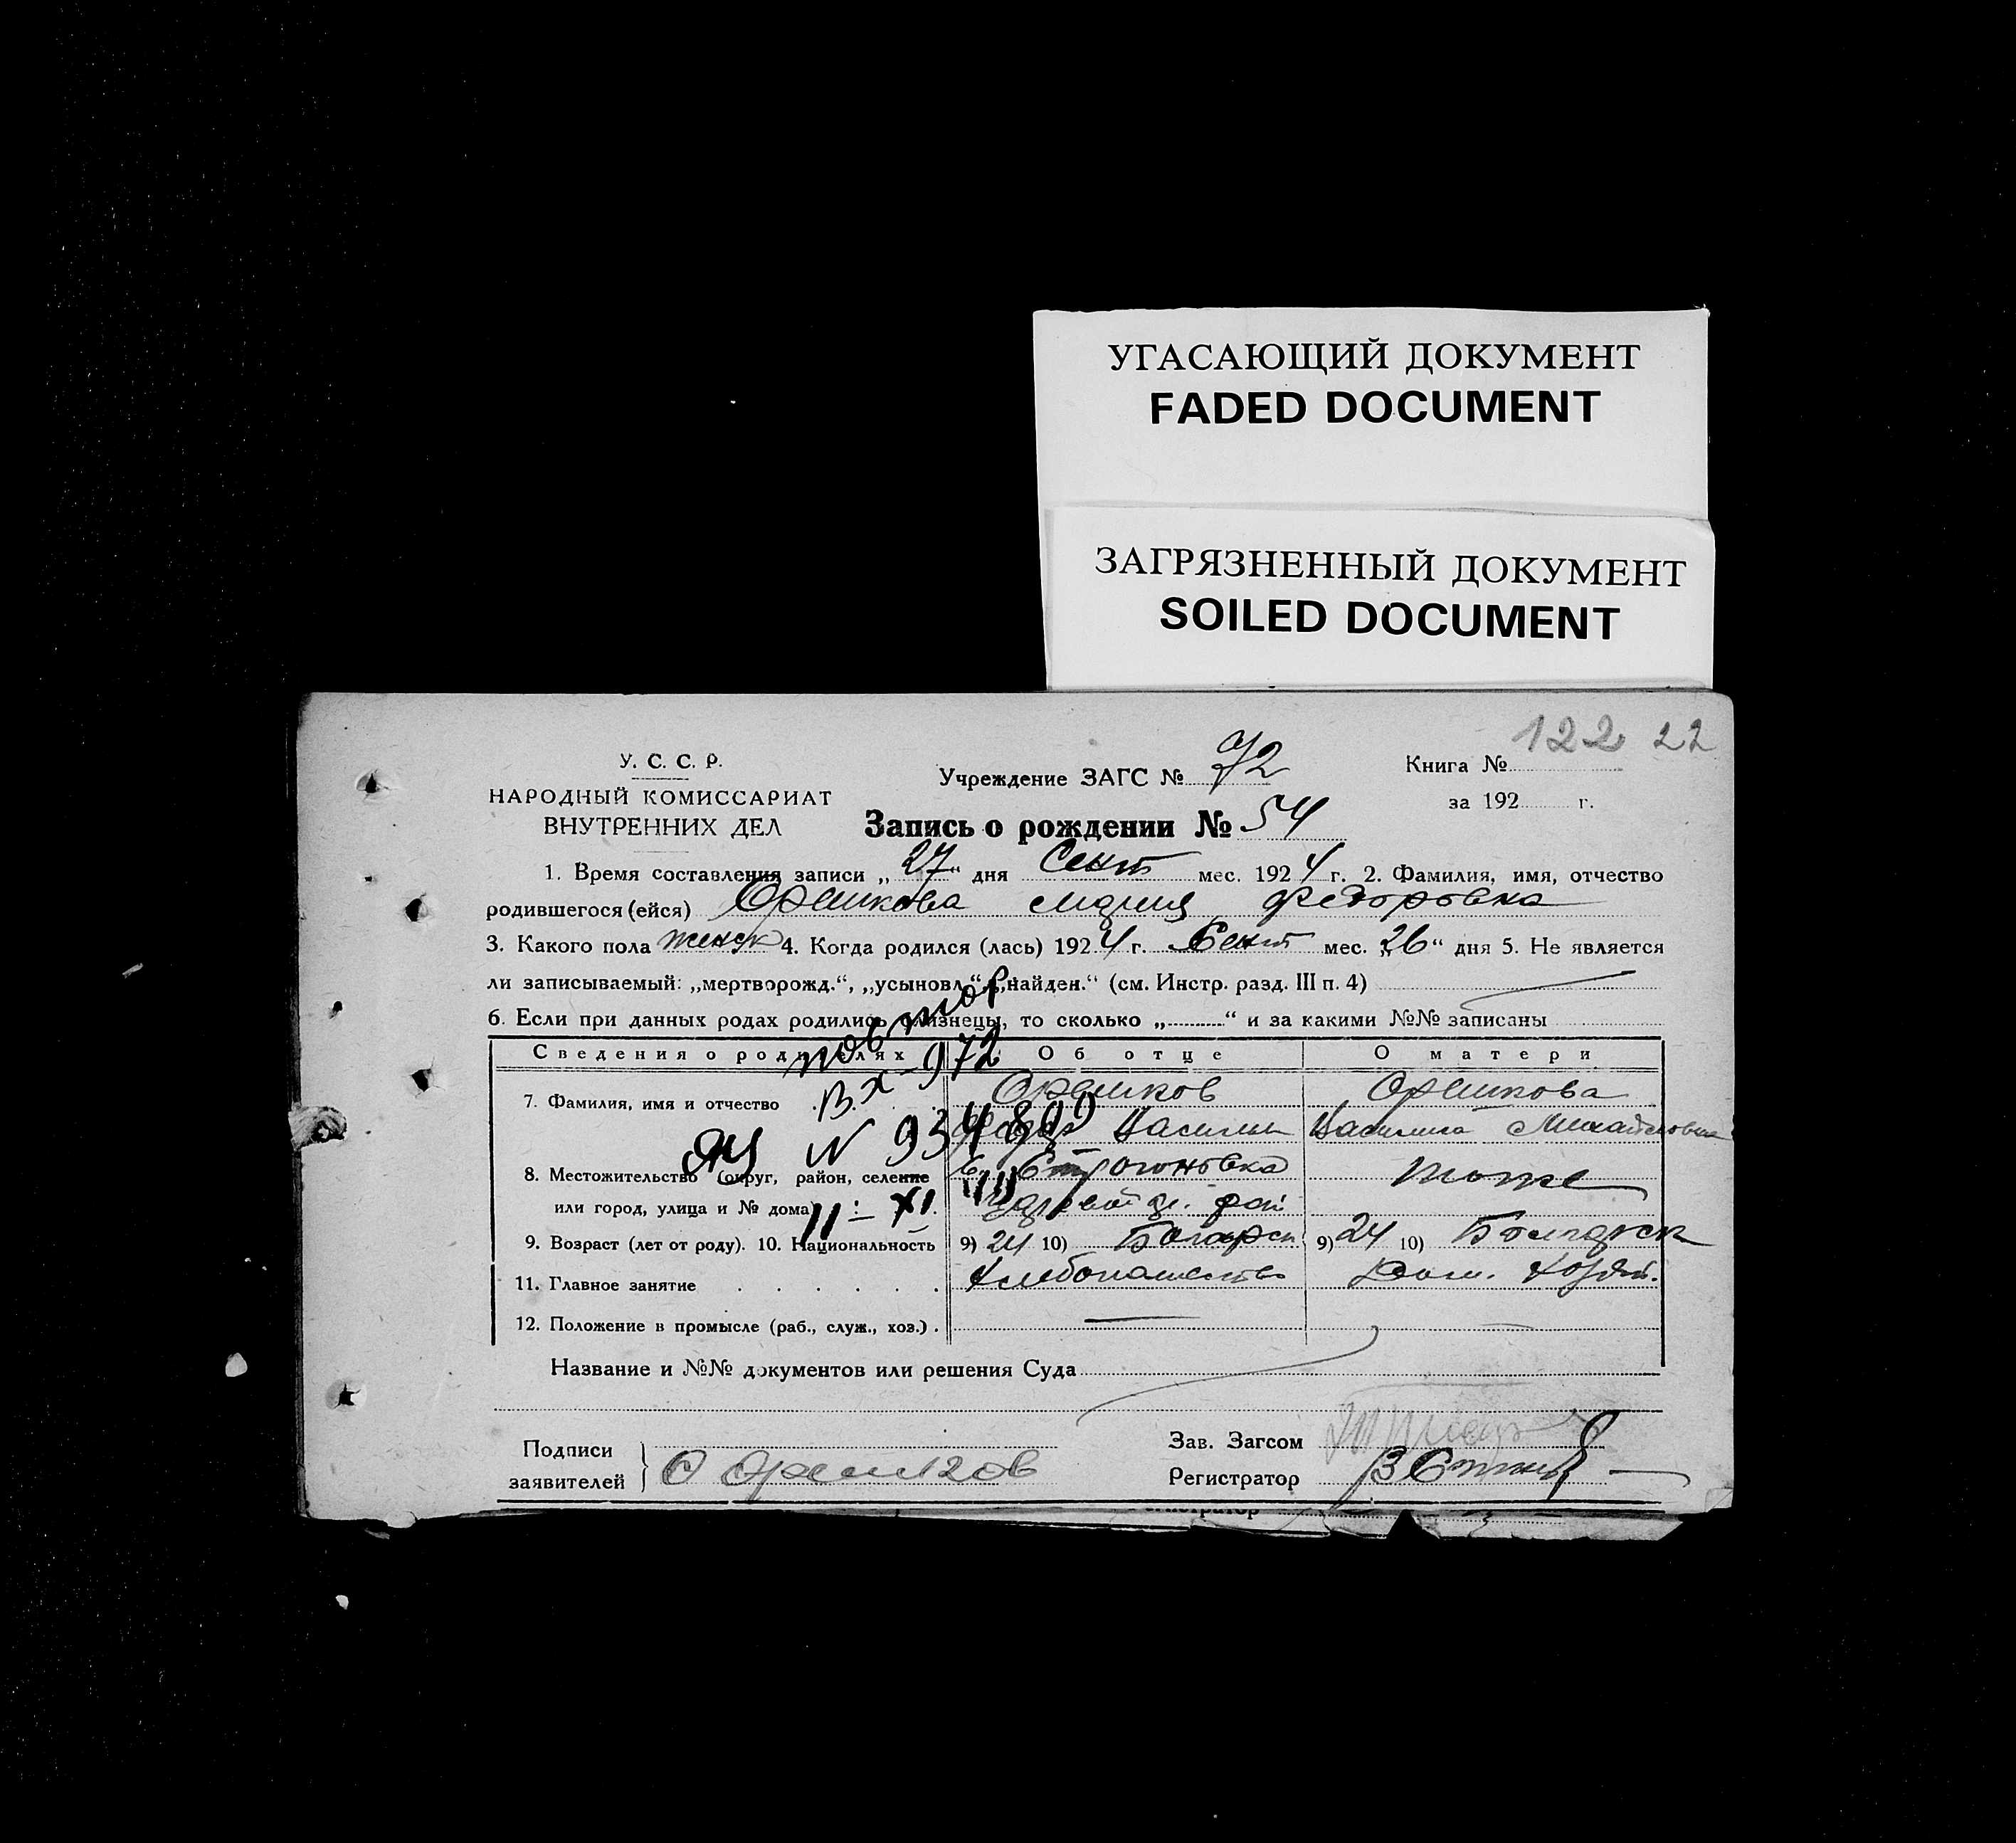 УГАСАЮЩИЙ ДОКУМЕНТ
FADED DOCUMENT
ЗАГРЯЗНЕННЫЙ ДОКУМЕНТ
SOILED DOCUMENT
122 22
У. С. С. Р.
НАРОДНЫЙ КОМИССАРИАТ
ВНУТРЕННИХ ДЕЛ
Учреждение ЗАГС № 72
Книга №
за 192 г.
Запись о рождении № 54
1. Время составления записи „27“ дня Сент мес. 1924 г. 2. Фамилия, имя, отчество
родившегося (ейся) Орешкова Мария Федоровна
3. Какого пола женск 4. Когда родился (лась) 1924 г. Сент мес. „26“ дня 5. Не является
ли записываемый: „мертворожд.“, „усыновл.“, „найден.“ (см. Инстр. разд. III п. 4)
6. Если при данных родах родились близнецы, то сколько „ “ и за какими №№ записаны
повтор
Вх-972
ЯЧ N 934899
11 – XI
Сведения о родителях Об отце О матери
7. Фамилия, имя и отчество Орешков Орешкова
Федор Василий Василиса Михайловна
8. Местожительство (округ, район, селение с. Строгоновка тоже
или город, улица и № дома) рай
9. Возраст (лет от роду). 10. Национальность 9) 24 10) Болгарск 9) 24 10) Болгарск
11. Главное занятие Хлебопашество Дом. Хозяй.
12. Положение в промысле (раб., служ., хоз.)
Название и №№ документов или решения Суда
Подписи
заявителей
Орешков
Зав. Загсом
Регистратор